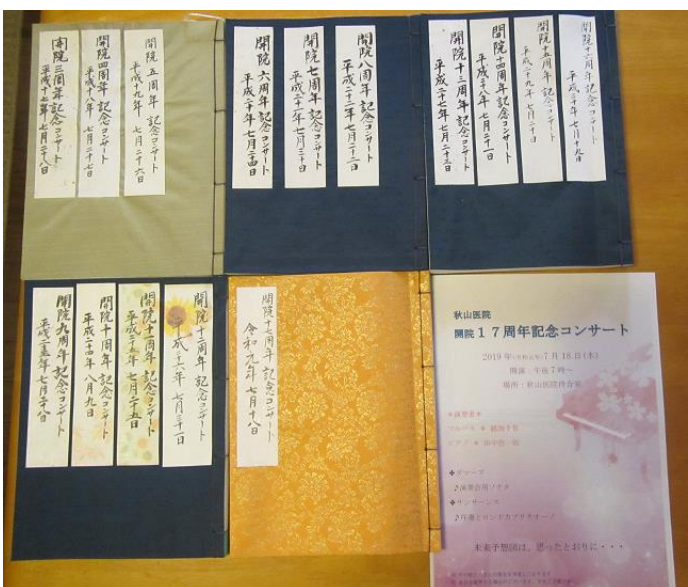 開院三周年記念コンサート
平成十七年 七月二十八日
開院四周年記念コンサート
平成十八年 七月二十七日
開院五周年 記念コンサート
平成十九年 七月二十六日
開院六周年 記念コンサート
平成二十年 七月二十四日
開院七周年 記念コンサート
平成二十一年 七月三十日
開院八周年 記念コンサート
平成二十二年 七月二十二日
開院十三周年 記念コンサート
平成二十七年 七月二十三日
開院十四周年 記念コンサート
平成二十八年 七月二十一日
開院十五周年 記念コンサート
平成二十九年 七月二十日
平成三十年 七月十九日
開院九周年 記念コンサート
七月二十八日
開院十周年 記念コンサート
平成二十四年 八月九日
開院十一周年 記念コンサート
平成二十五年 七月二十五日
開院十二周年 記念コンサート
平成二十六年 七月三十一日
開院十七周年 記念コンサート
令和元年 七月十八日
秋山医院
開院17周年記念コンサート
2019年(令和元年)7月18日(木)
開演:午後7時~
場所:秋山医院待合室
*演奏者*
フルート *
ピアノ * 田中
❖ダマーズ
♪演奏会用ソナタ
❖サンサーンス
♪序奏とロンドカプリチオーソ
未来予想図は、思ったとおりに・・・